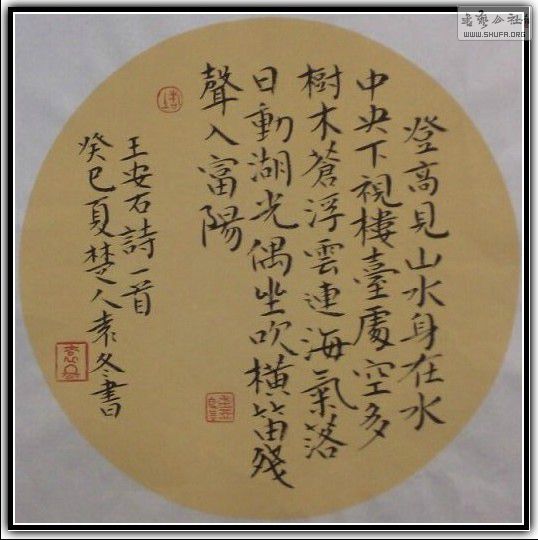 登高見山水身在水
中央下視樓臺處空多
樹木蒼浮雲連海氣落
日動湖光偶坐吹橫笛殘
聲入富陽
王安石詩一首
癸巳夏楚人袁冬書
WWW.SHUFA.ORG